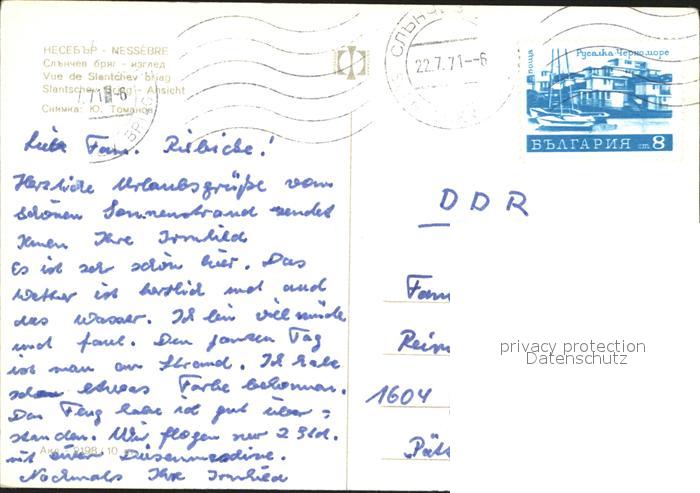 НЕСЕБЪР - NESSÈBRE
Слънчев бряг - изглед
Vue de Slantchev Briag
Slantschev Brjag - Ansicht
Снимка: Ю. Томанов
7.71 -6
СЛЪНЧЕВ
22.7.71--6
поща
Русалка-Черноморе
БЪЛГАРИЯ ст 8
Liebe Fam. Riebicke!
Herzliche Urlaubsgrüße vom
schönen Sonnenstrand sendet
Ihnen Ihre Irmhild
Es ist sehr schön hier. Das
Wetter ist herrlich und auch
das Wasser. Ich bin viel müde
und faul. Den ganzen Tag
ist man am Strand. Ich habe
schon etwas Farbe bekommen.
Den Flug habe ich gut über=
standen. Wir flogen nur 2 Std.
mit einer Düsenmaschine.
Nochmals Ihre Irmhild
DDR
Fam
Rein
1604
Päts
privacy protection
Datenschutz